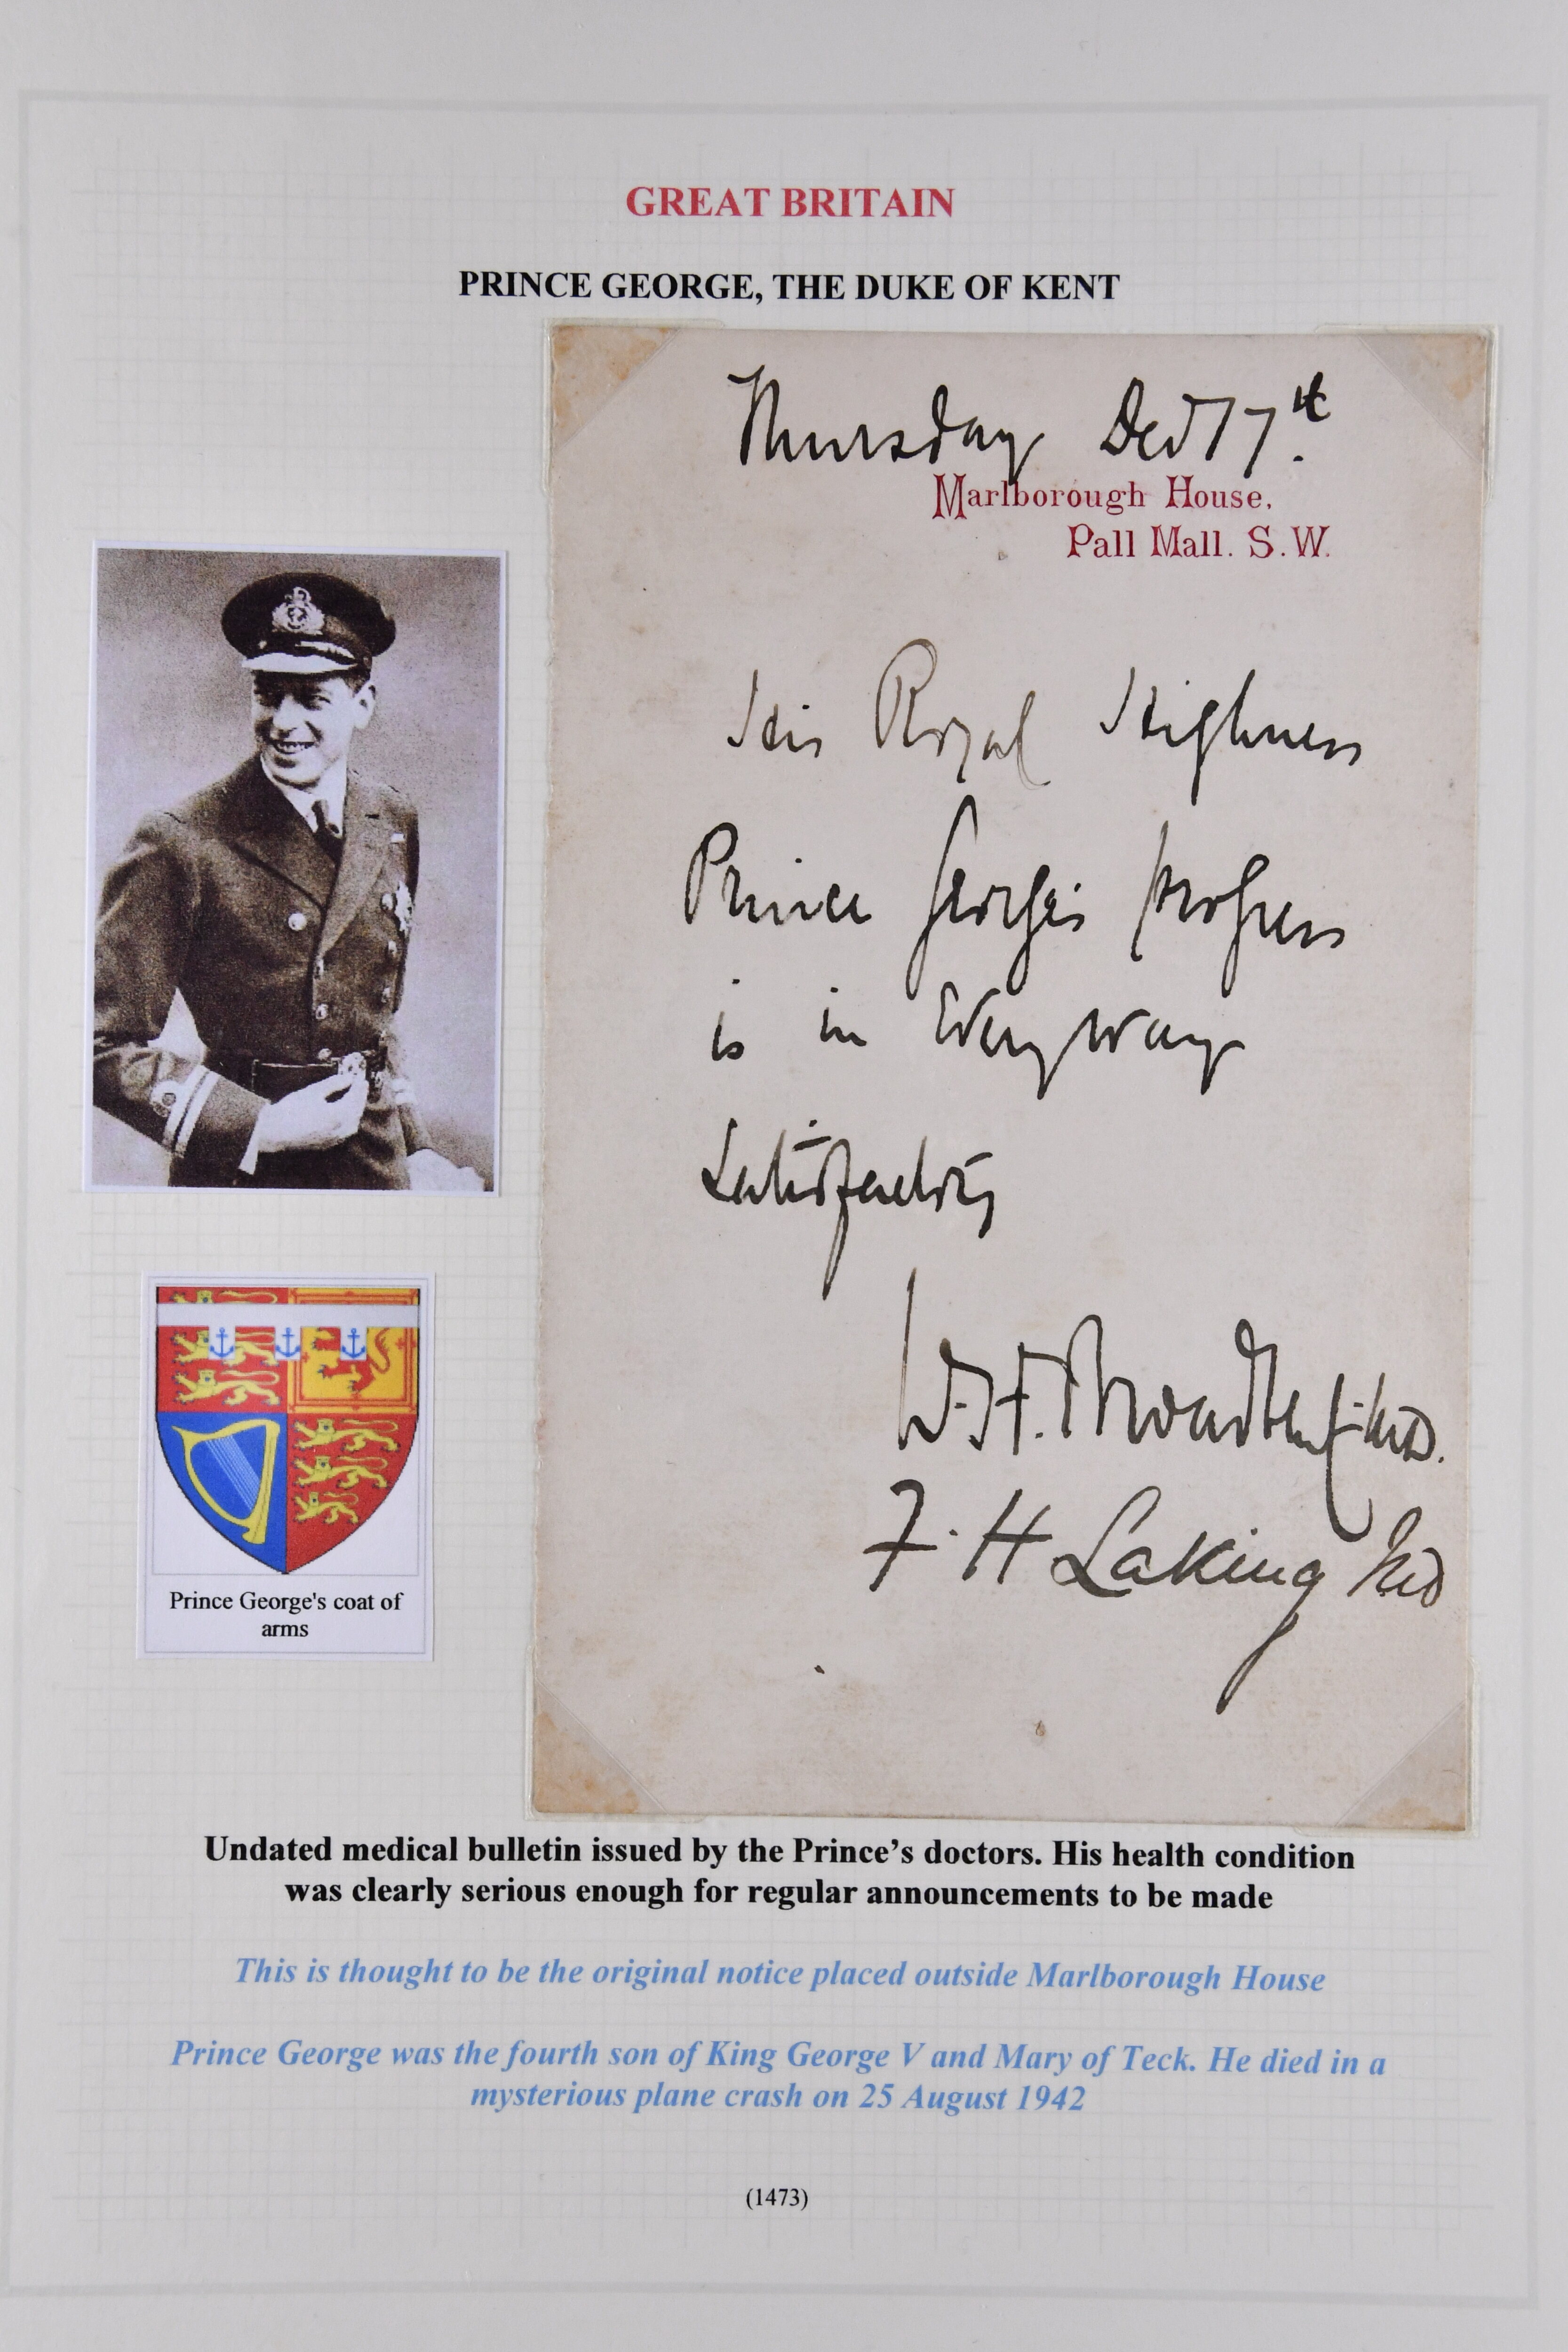 GREAT BRITAIN
PRINCE GEORGE, THE DUKE OF KENT
Thursday Dec 17th.
Marlborough House,
Pall Mall. S.W.
His Royal Highness
Prince George's progress
is in Every way
Satisfactory
W.H. Broadbent. MD.
F. H Laking MD
Prince George's coat of
arms
Undated medical bulletin issued by the Prince’s doctors. His health condition
was clearly serious enough for regular announcements to be made
This is thought to be the original notice placed outside Marlborough House
Prince George was the fourth son of King George V and Mary of Teck. He died in a
mysterious plane crash on 25 August 1942
(1473)